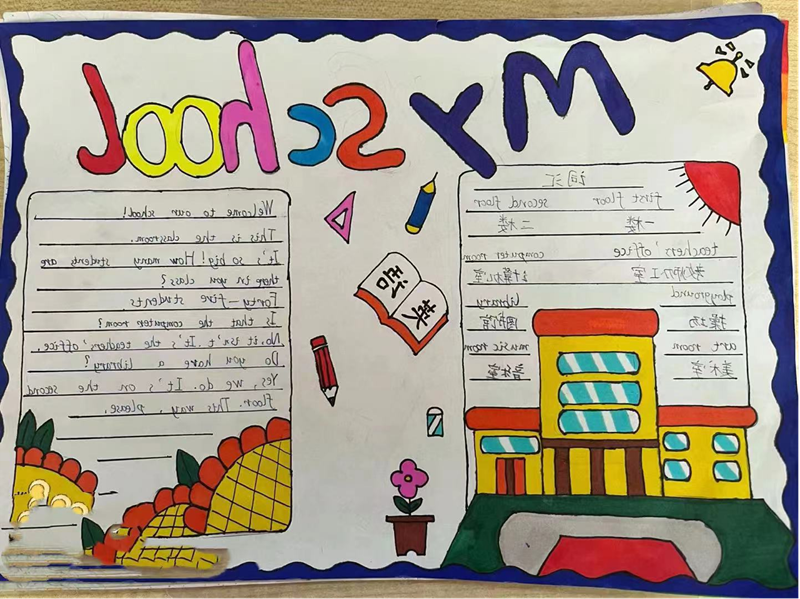 My School
词汇
first floor second floor
一楼 二楼
teachers' office computer room
教师办工室 计算机室
playground library
操场 图书馆
art room music room
美术室 音乐室
英语
Welcome to our shool!
This is the clasroom.
It's so big! How many students are
there in you class?
Forty-five students
Is that the computer room?
No.it isn't. It's the teachers' office.
Do you have a library?
Yes, we do. It's on the second
floor. This way, please.